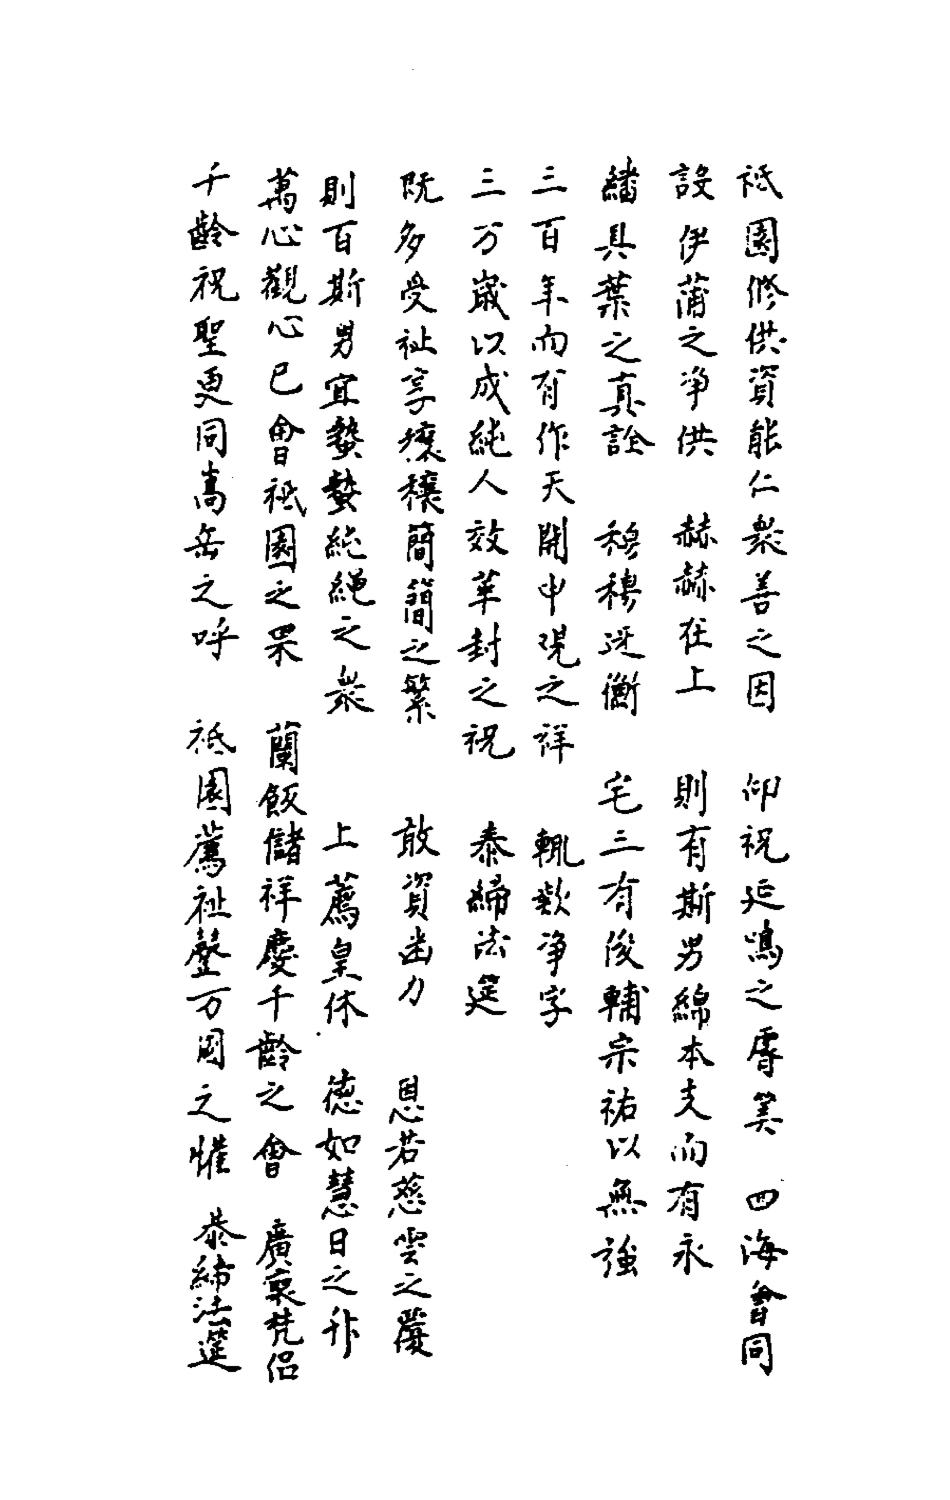 祇園修供資能仁衆善之因 仰祝延鴻之睿筭 四海會同
設伊蒲之净供 赫赫在上 則有斯男綿本支而有永
繙貝葉之真詮 穆穆迓衡 宅三有俊輔宗祐以無強
三百年而有作天開申觀之祥 輒歎净字
三万歲以成純人效華封之祝 泰締法筵
既多受祉享穰穰簡簡之繁 敢資出力 恩若慈雲之蔭
則百斯男宜蟄蟄繩繩之衆 上薦皇休 德如慧日之升
萬心觀心已會祇園之果 蘭飯儲祥慶千齡之會 廣裒梵侣
千齡祝聖更同嵩岳之呼 祇園薦祉罄万国之懽 恭締法筵